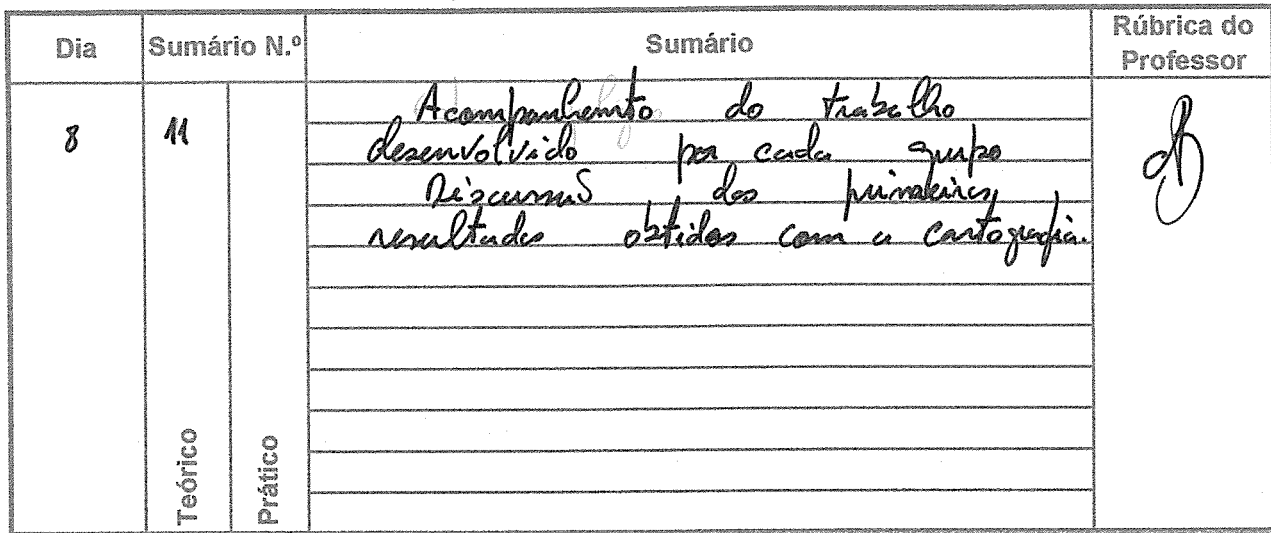 Dia Sumário N.º Sumário Rúbrica do Professor
8 11
Acompanhamento do trabalho
desenvolvido por cada grupo
Discussão dos primeiros
resultados obtidos com a cartografia.
Teórico Prático